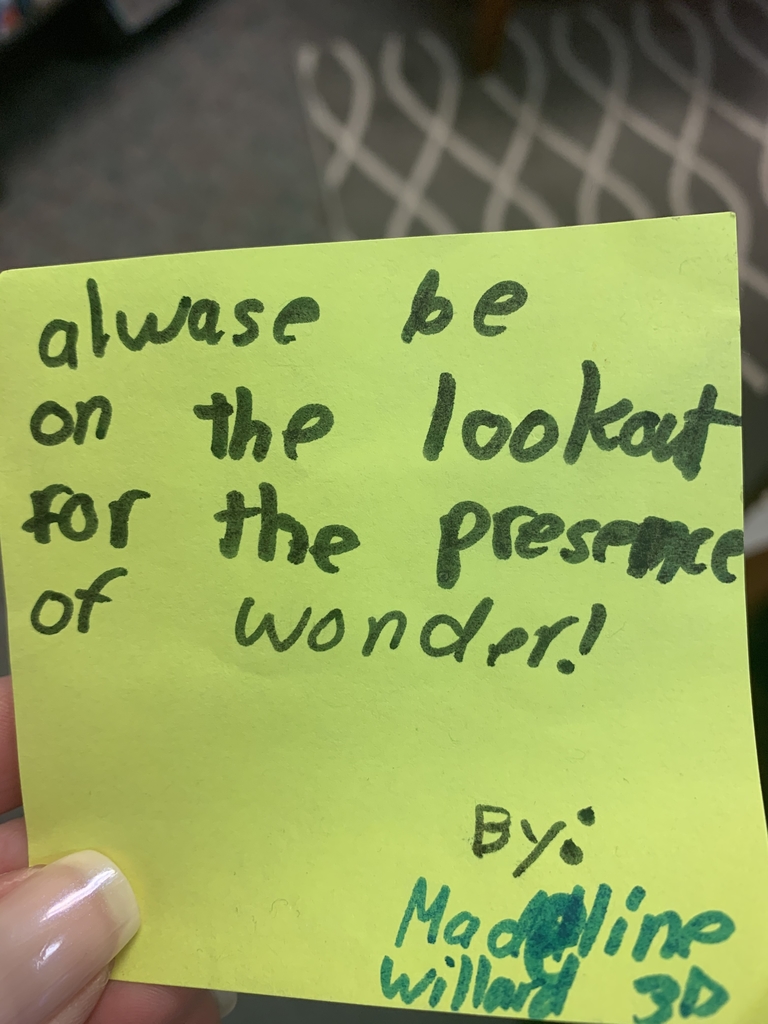 alwase be
on the lookout
for the presence
of wonder!
By:
Madeline
Willard 3D